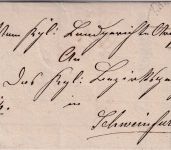 Vom Kgl. Landgerichte
An
Das Kgl. Bezirks
in
Schweinfur